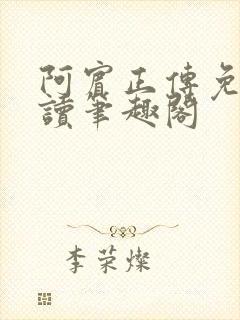 阿賓正傳免
讀筆趣閣
李荣燦